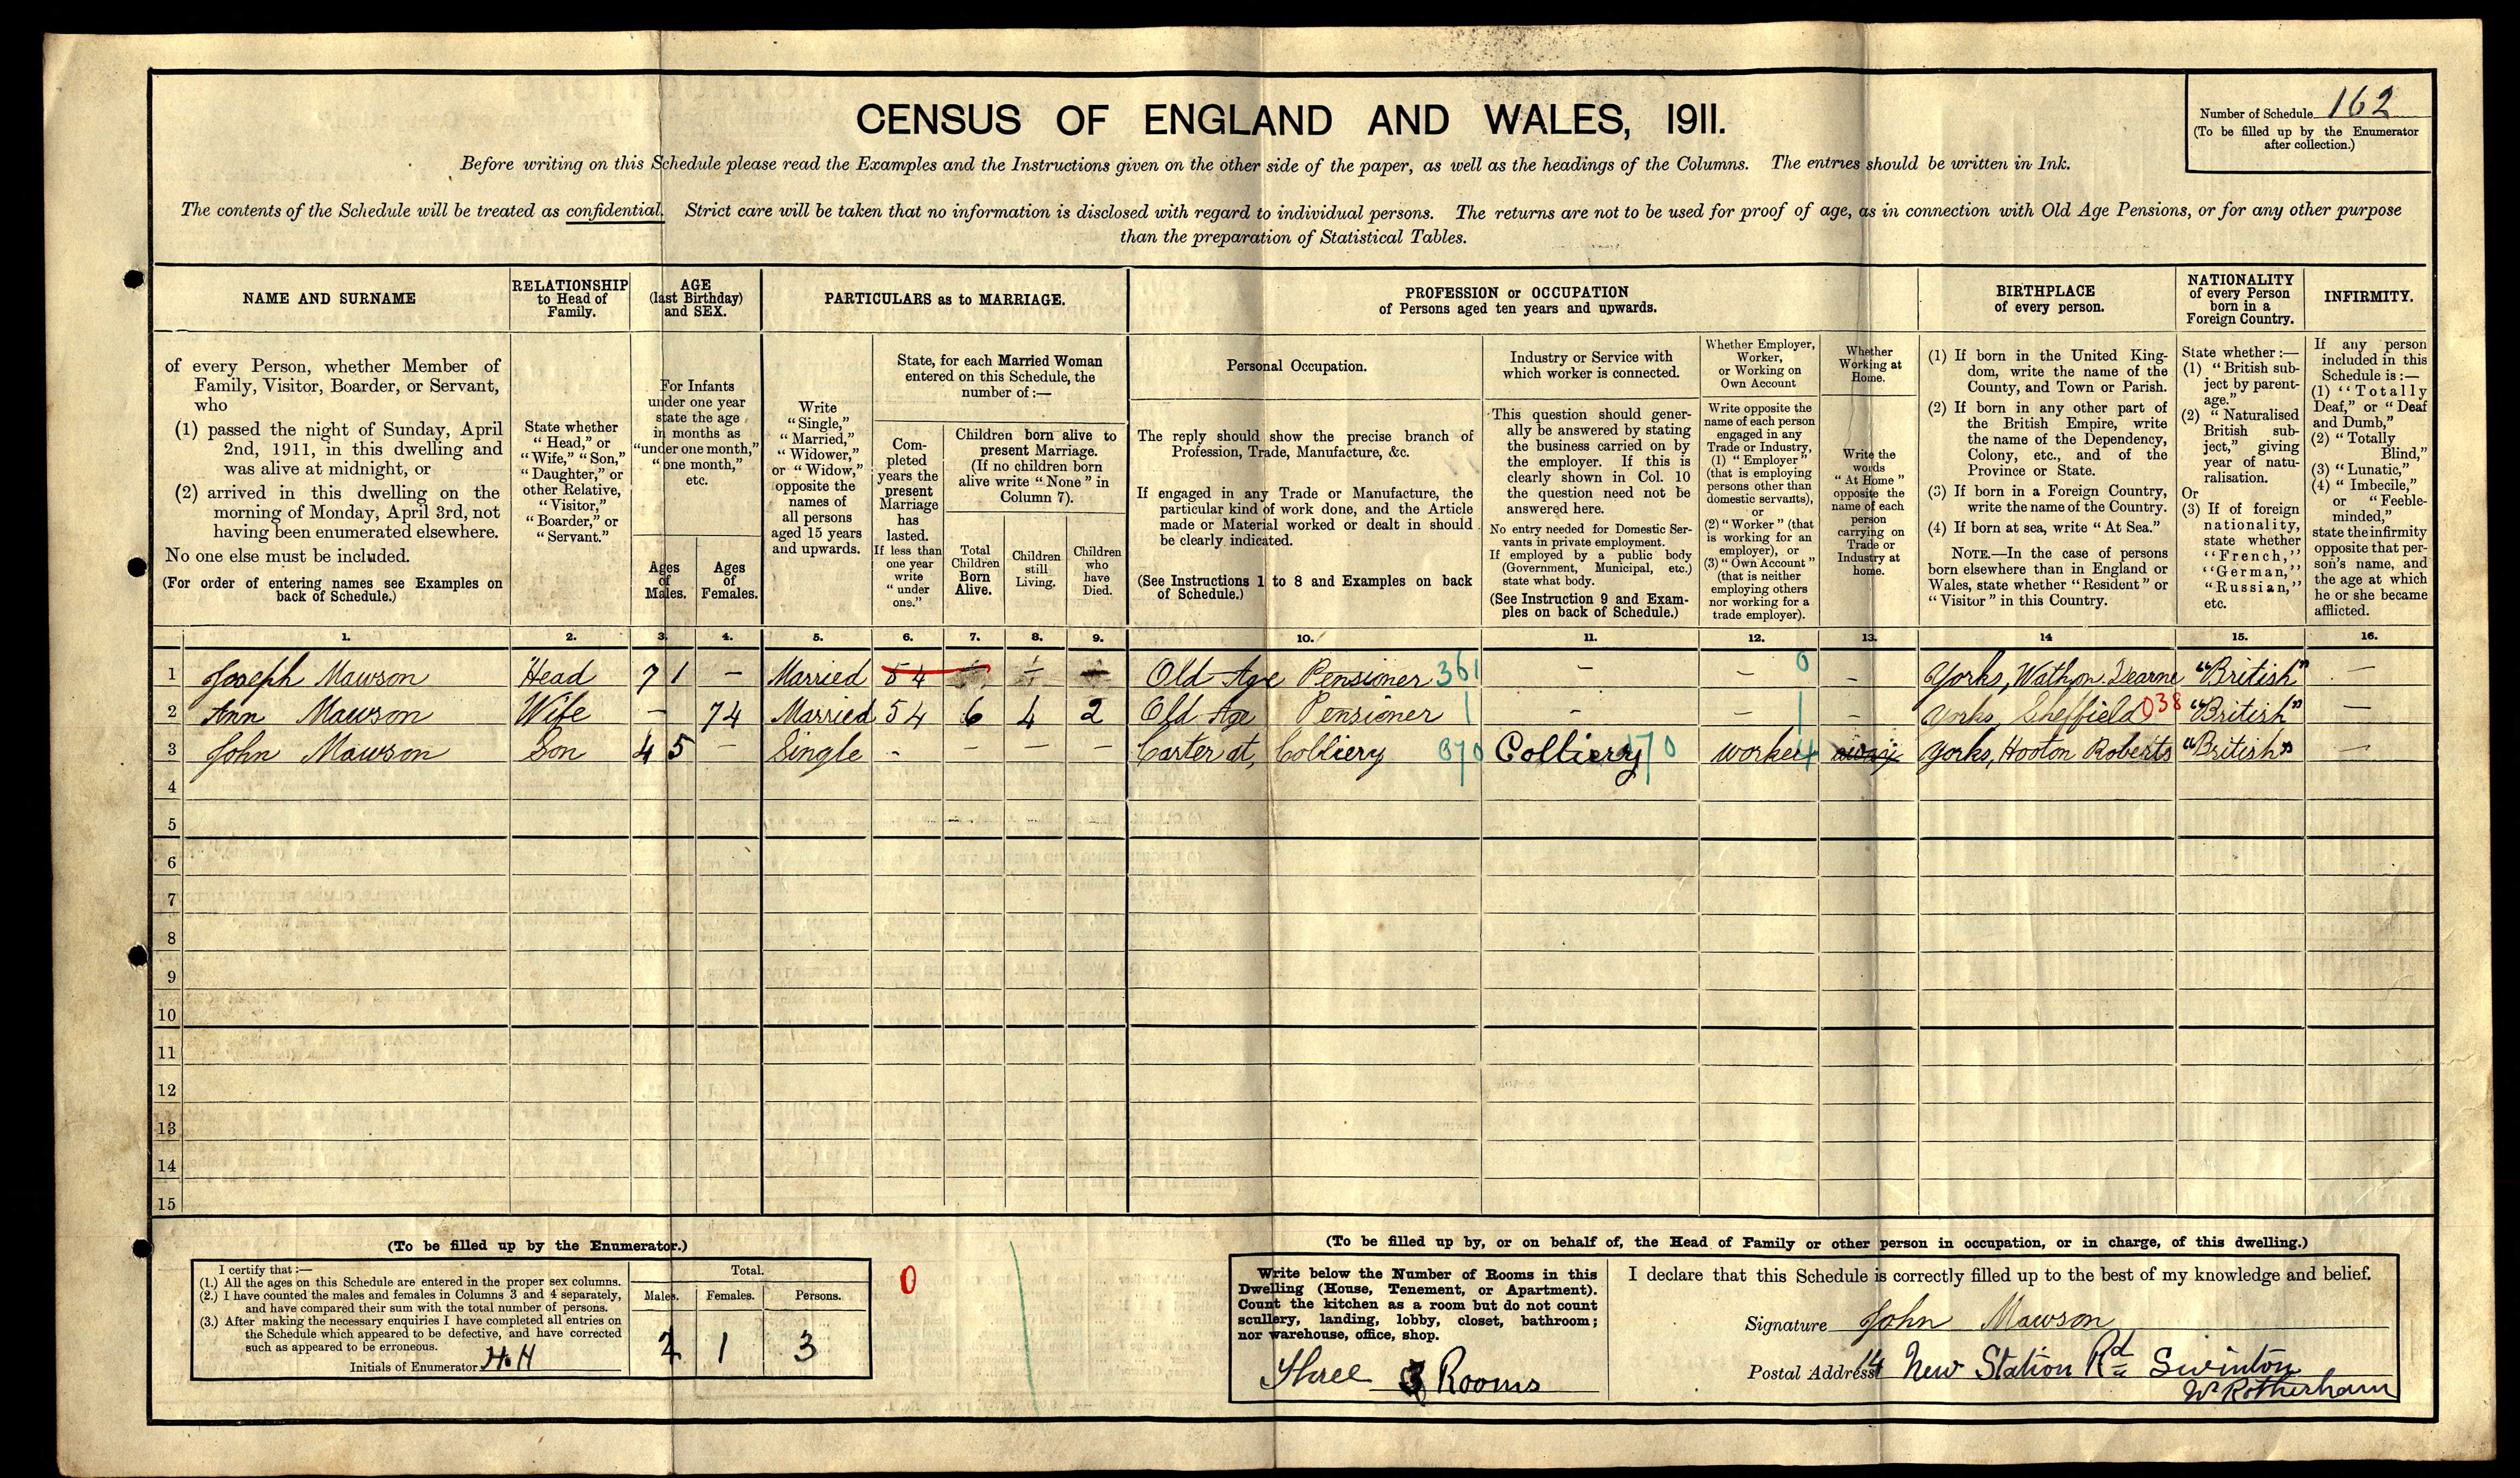 CENSUS OF ENGLAND AND WALES, 1911.
Number of Schedule 162
(To be filled up by the Enumerator
after collection.)
Before writing on this Schedule please read the Examples and the Instructions given on the other side of the paper, as well as the headings of the Columns. The entries should be written in Ink.
The contents of the Schedule will be treated as confidential. Strict care will be taken that no information is disclosed with regard to individual persons. The returns are not to be used for proof of age, as in connection with Old Age Pensions, or for any other purpose
than the preparation of Statistical Tables.
NAME AND SURNAME
of every Person, whether Member of
Family, Visitor, Boarder, or Servant,
who
(1) passed the night of Sunday, April
2nd, 1911, in this dwelling and
was alive at midnight, or
(2) arrived in this dwelling on the
morning of Monday, April 3rd, not
having been enumerated elsewhere.
No one else must be included.
(For order of entering names see Examples on
back of Schedule.)
RELATIONSHIP
to Head of
Family.
State whether
"Head," or
"Wife," "Son,"
"Daughter," or
other Relative,
"Visitor,"
"Boarder," or
"Servant."
AGE
(last Birthday)
and SEX.
For Infants
under one year
state the age
in months as
"under one month,"
"one month,"
etc.
Ages
of
Males.
Ages
of
Females.
PARTICULARS as to MARRIAGE.
Write
"Single,"
"Married,"
"Widower,"
or "Widow,"
opposite the
names of
all persons
aged 15 years
and upwards.
State, for each Married Woman
entered on this Schedule, the
number of:—
Com-
pleted
years the
present
Marriage
has
lasted.
If less than
one year
write
"under
one."
Children born alive to
present Marriage.
(If no children born
alive write "None" in
Column 7).
Total
Children
Born
Alive.
Children
still
Living.
Children
who
have
Died.
PROFESSION or OCCUPATION
of Persons aged ten years and upwards.
Personal Occupation.
The reply should show the precise branch of
Profession, Trade, Manufacture, &c.
If engaged in any Trade or Manufacture, the
particular kind of work done, and the Article
made or Material worked or dealt in should
be clearly indicated.
(See Instructions 1 to 8 and Examples on back
of Schedule.)
Industry or Service with
which worker is connected.
This question should gener-
ally be answered by stating
the business carried on by
the employer. If this is
clearly shown in Col. 10
the question need not be
answered here.
No entry needed for Domestic Ser-
vants in private employment.
If employed by a public body
(Government, Municipal, etc.)
state what body.
(See Instruction 9 and Exam-
ples on back of Schedule.)
Whether Employer,
Worker,
or Working on
Own Account
Write opposite the
name of each person
engaged in any
Trade or Industry,
(1) "Employer"
(that is employing
persons other than
domestic servants),
or
(2) "Worker" (that
is working for an
employer), or
(3) "Own Account"
(that is neither
employing others
nor working for a
trade employer).
Whether
Working at
Home.
Write the
words
"At Home"
opposite the
name of each
person
carrying on
Trade or
Industry at
home.
BIRTHPLACE
of every person.
(1) If born in the United King-
dom, write the name of the
County, and Town or Parish.
(2) If born in any other part of
the British Empire, write
the name of the Dependency,
Colony, etc., and of the
Province or State.
(3) If born in a Foreign Country,
write the name of the Country.
(4) If born at sea, write "At Sea."
NOTE.—In the case of persons
born elsewhere than in England or
Wales, state whether "Resident" or
"Visitor" in this Country.
NATIONALITY
of every Person
born in a
Foreign Country.
State whether:—
(1) "British sub-
ject by parent-
age."
(2) "Naturalised
British sub-
ject," giving
year of natu-
ralisation.
Or
(3) If of foreign
nationality,
state whether
"French,"
"German,"
"Russian,"
etc.
INFIRMITY.
If any person
included in this
Schedule is:—
(1) "Totally
Deaf," or "Deaf
and Dumb,"
(2) "Totally
Blind,"
(3) "Lunatic,"
(4) "Imbecile,"
or "Feeble-
minded,"
state the infirmity
opposite that per-
son's name, and
the age at which
he or she became
afflicted.
1. 2. 3. 4. 5. 6. 7. 8. 9. 10. 11. 12. 13. 14 15. 16.
1 Joseph Mawson Head 71 – Married 54 Old Age Pensioner 361 – – 0 – Yorks, Wath on Dearne "British" –
2 Ann Mawson Wife – 74 Married 54 6 4 2 Old Age Pensioner 1 – – 1 – Yorks, Sheffield 038 "British" –
3 John Mawson Son 45 – Single - – – – Carter at, Colliery 370 Colliery 170 worker 4 Yorks, Hooton Roberts "British" –
4
5
6
7
8
9
10
11
12
13
14
15
(To be filled up by the Enumerator.)
I certify that:—
(1.) All the ages on this Schedule are entered in the proper sex columns.
(2.) I have counted the males and females in Columns 3 and 4 separately,
and have compared their sum with the total number of persons.
(3.) After making the necessary enquiries I have completed all entries on
the Schedule which appeared to be defective, and have corrected
such as appeared to be erroneous.
Initials of Enumerator H.H
Total.
Males. Females. Persons.
2 1 3
0
(To be filled up by, or on behalf of, the Head of Family or other person in occupation, or in charge, of this dwelling.)
Write below the Number of Rooms in this
Dwelling (House, Tenement, or Apartment).
Count the kitchen as a room but do not count
scullery, landing, lobby, closet, bathroom;
nor warehouse, office, shop.
Three 3 Rooms
I declare that this Schedule is correctly filled up to the best of my knowledge and belief.
Signature John Mawson
Postal Address 14 New Station Rd Swinton
Nr Rotherham